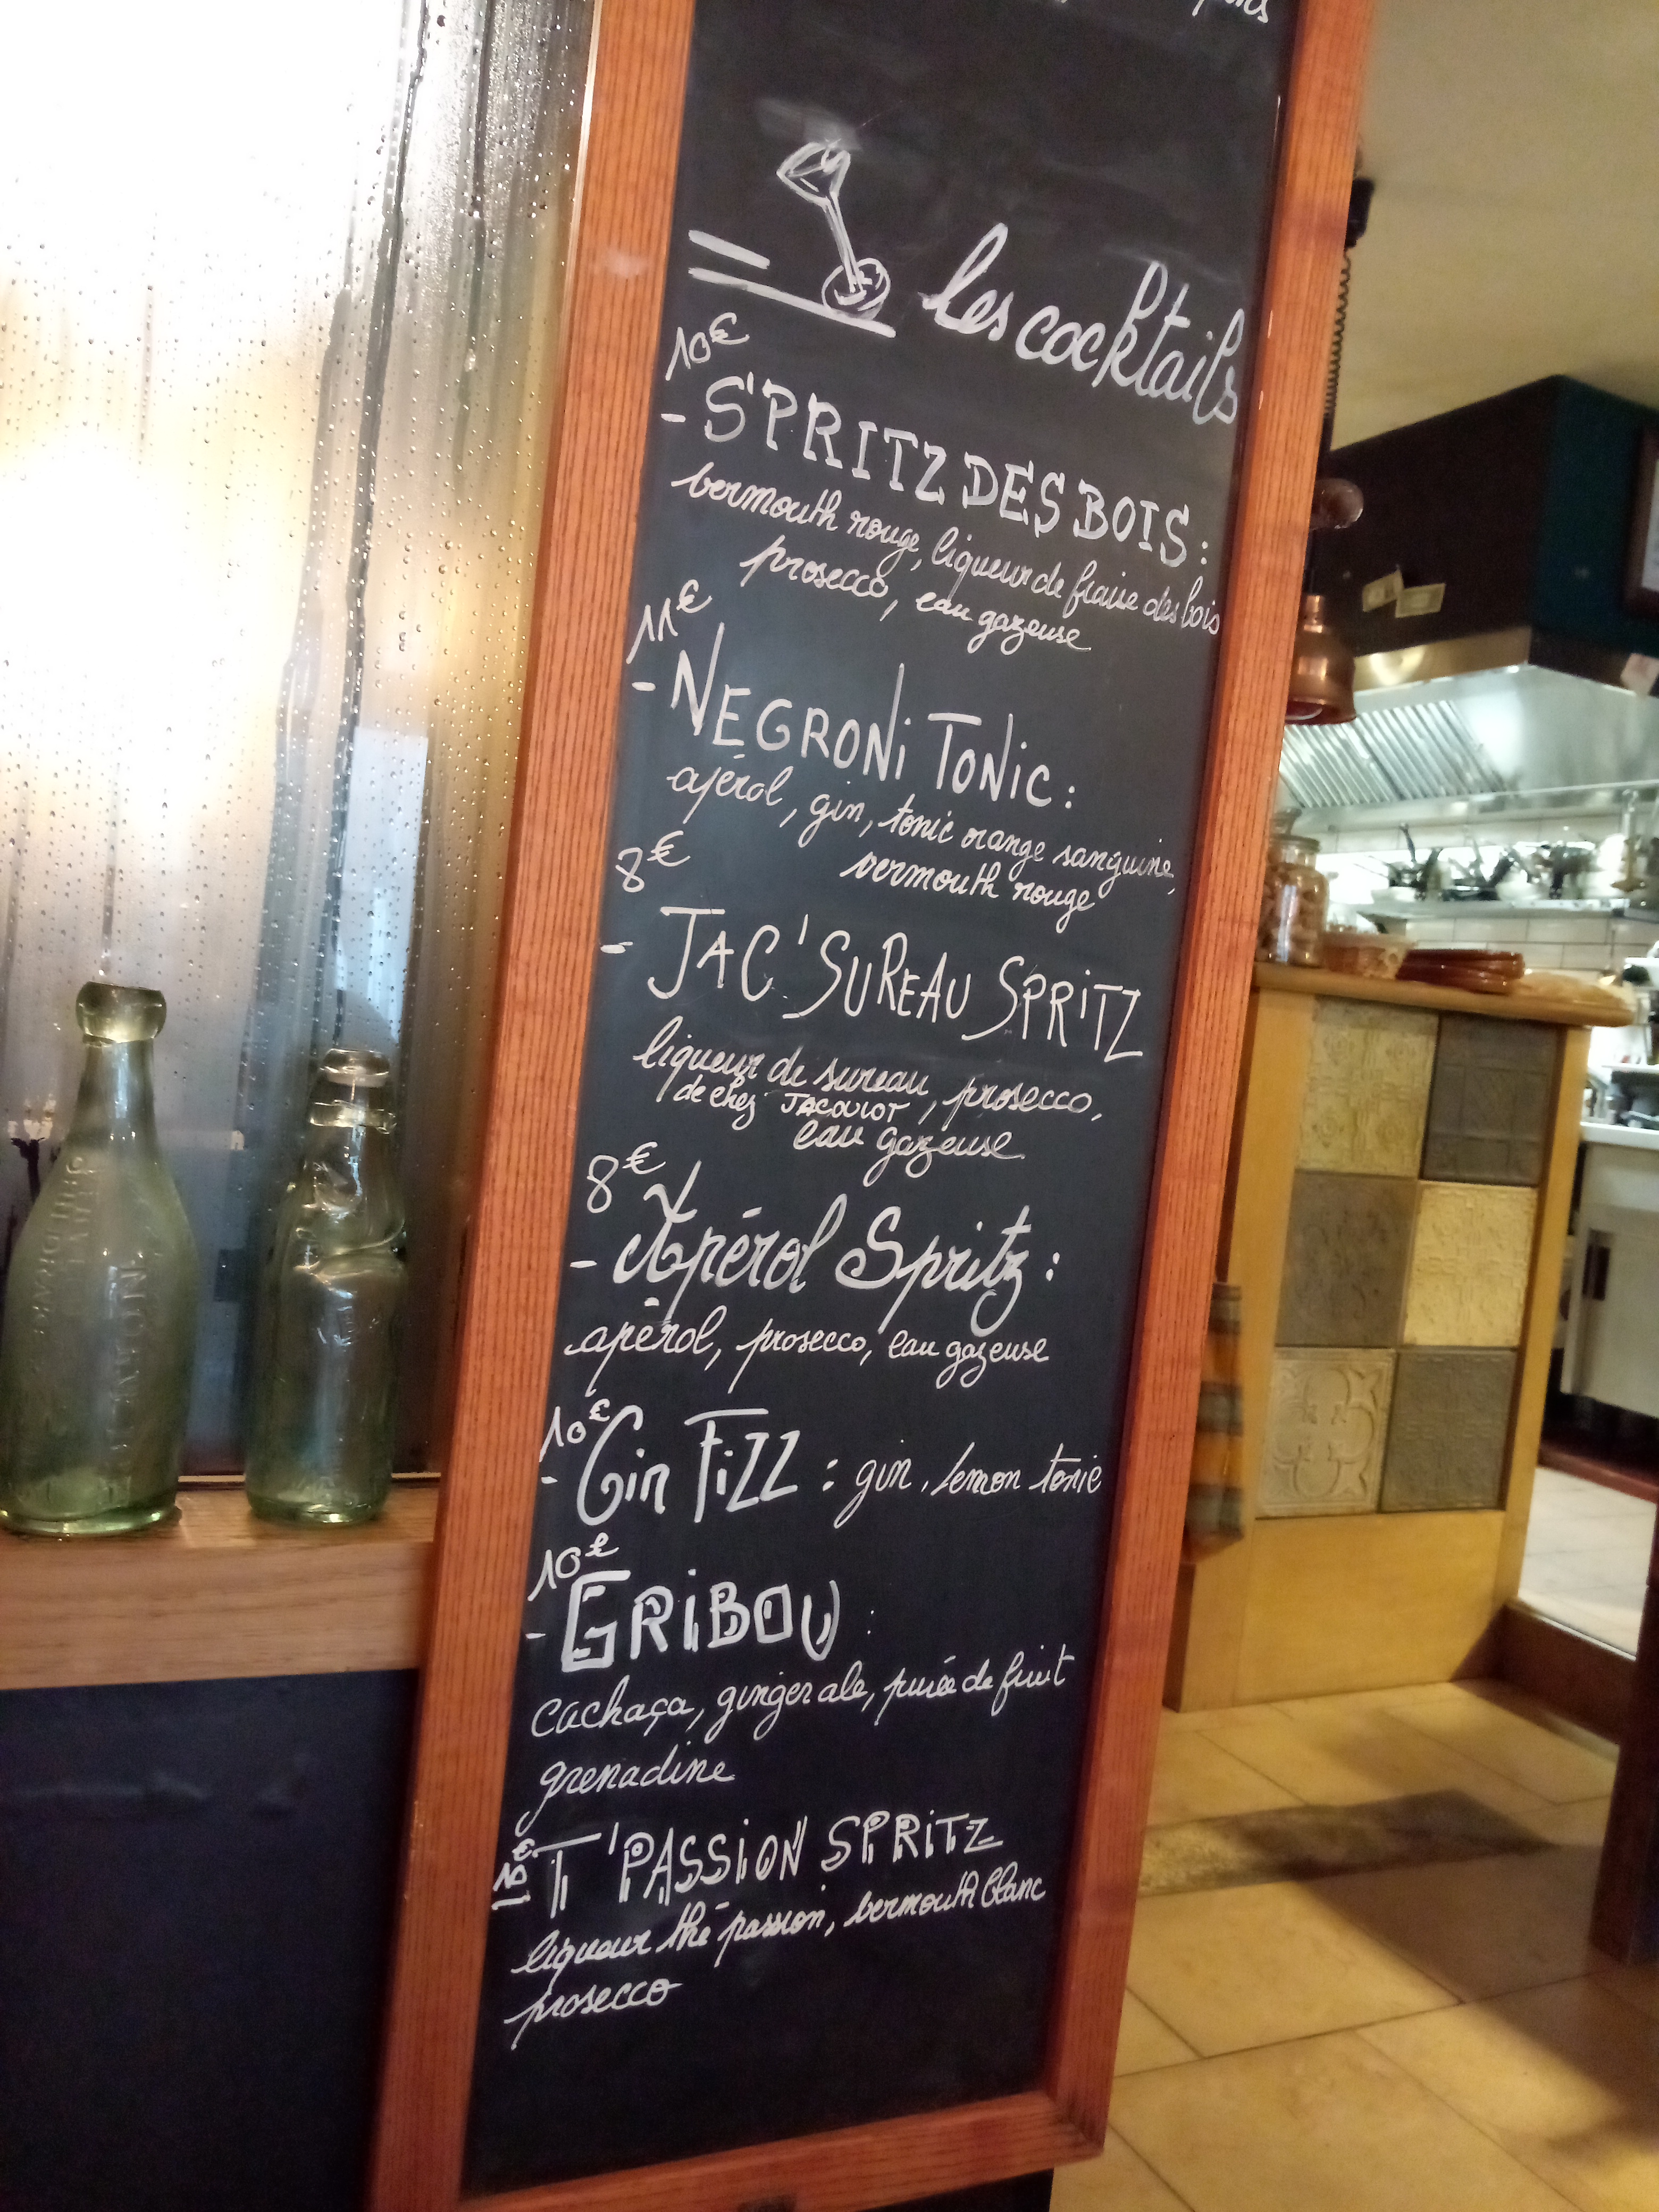 les cocktails
10€
- SPRITZ DES BOIS :
vermouth rouge, liqueur de fraise des bois
prosecco, eau gazeuse
11€
- NEGRONi TONiC :
apérol, gin, tonic orange sanguine,
vermouth rouge
8€
- JAC'SUREAU SPRiTZ
liqueur de sureau, prosecco,
de chez JACOULOT
eau gazeuse
8€
- Apérol Spritz :
apérol, prosecco, eau gazeuse
10€
- Gin FiZZ : gin, lemon tonic
10€
- GRiBOU :
cachaça, ginger ale, purée de fruit
grenadine
10€
- T'PASSiON SPRiTZ
liqueur thé passion, vermouth blanc
prosecco